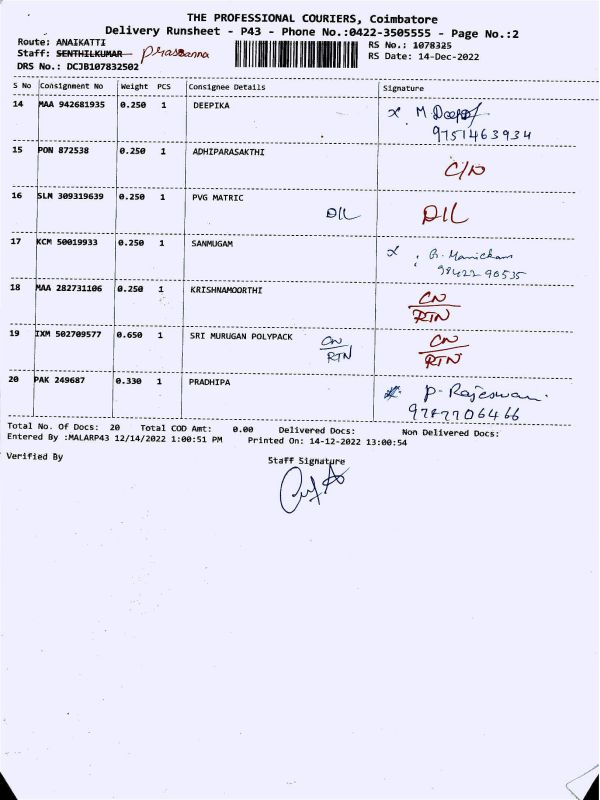 THE PROFESSIONAL COURIERS, Coimbatore
Delivery Runsheet - P43 - Phone No.:0422-3505555 - Page No.:2
Route: ANAIKATTI
RS No.: 1078325
Staff: SENTHILKUMAR Prassanna
RS Date: 14-Dec-2022
DRS No.: DCJB107832502
S No Consignment No Weight PCS Consignee Details Signature
14 MAA 942681935 0.250 1 DEEPIKA x M Deepa
9751463934
15 PON 872538 0.250 1 ADHIPARASAKTHI C/D
16 SLM 309319639 0.250 1 PVG MATRIC D/L D/L
17 KCM 50019933 0.250 1 SANMUGAM x : G. Manickam
98422 90535
18 MAA 282731106 0.250 1 KRISHNAMOORTHI CN
RTN
19 IXM 502709577 0.650 1 SRI MURUGAN POLYPACK CN CN
RTN RTN
20 PAK 249687 0.330 1 PRADHIPA P. Rajeswari.
9787706466
Total No. Of Docs: 20 Total COD Amt: 0.00 Delivered Docs: Non Delivered Docs:
Entered By :MALARP43 12/14/2022 1:00:51 PM Printed On: 14-12-2022 13:00:54
Verified By Staff Signature